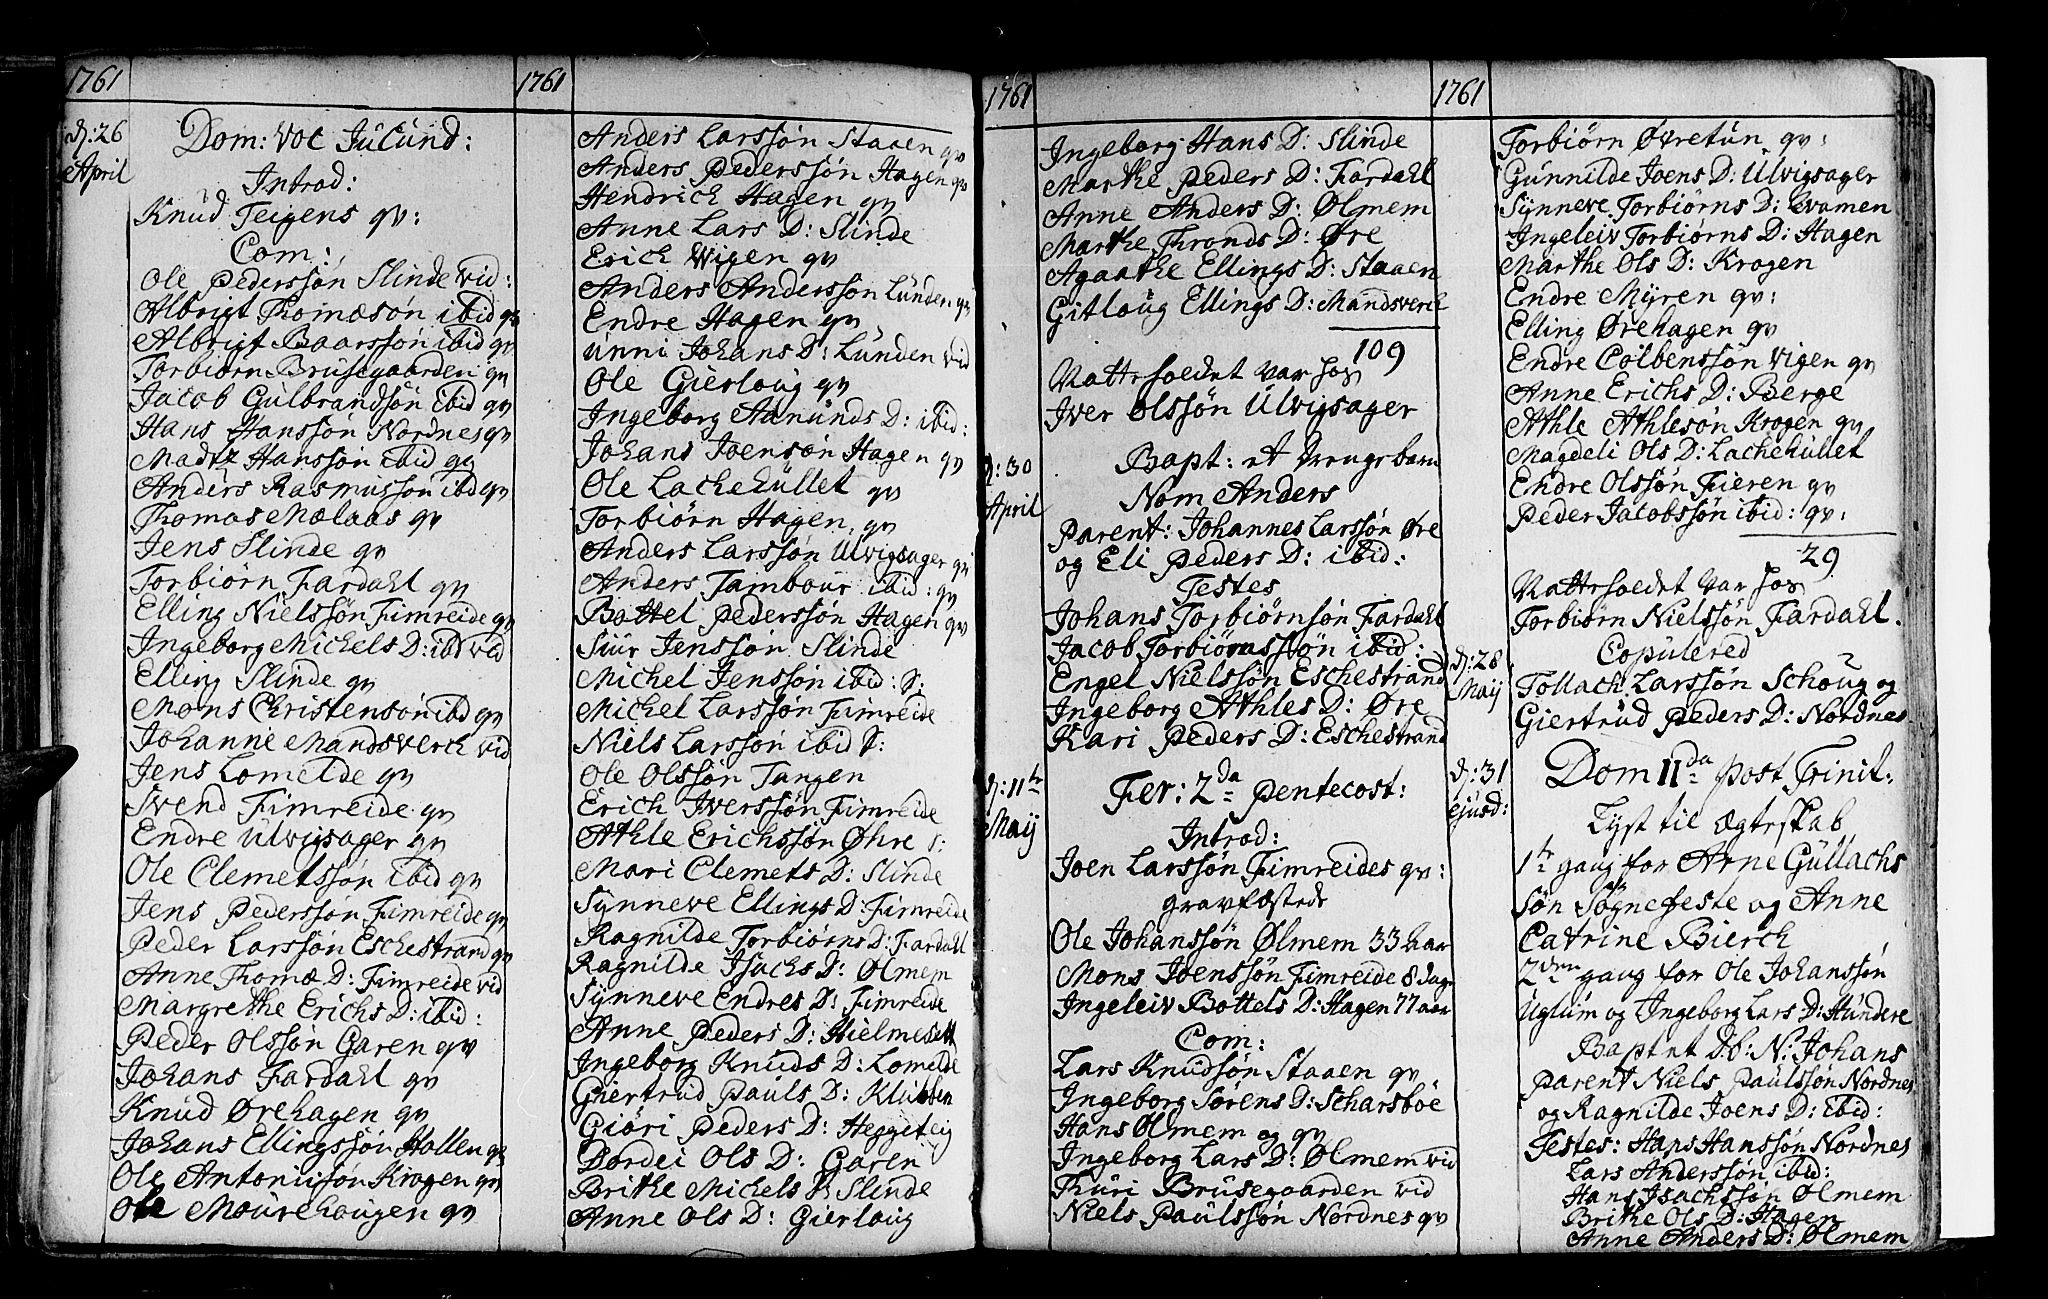 1761
d: 26
April
Dom: Voc Jucund:
Introd:
Knud Teigens qv:
Com:
Ole Pederssøn Slinde vid:
Albrigt Thomæsøn ibid qv
Albrigt Baarssøn ibid qv
Torbiørn Brusegaarden qv
Jacob Gulbrandsøn ibid qv
Hans Hanssøn Nordnes qv
Madtz Hanssøn ibid qv
Anders Rasmussøn ibd qv
Thomas Melaas qv
Jens Slinde qv
Torbiørn Fardahl qv
Elling Nielssøn Fimreide qv
Ingeborg Michels D: ibd vid
Elling Slinde qv
Mons Christensøn ibd qv
Johanne Mandsverch vid
Jens Lomelde qv
Svend Fimreide qv
Endre Ulvigsager qv
Ole Clemetssøn ibid qv
Jens Pederssøn Fimreide qv
Peder Larssøn Eschestrand qv
Anne Thomæ D: Fimreide vid
Margrethe Erichs D: ibid:
Peder Olssøn Garen qv
Johans Fardahl qv
Knud Ørehagen qv
Johans Ellingssøn Hollen qv
Ole Antonisøn Krogen qv
Ole Mourehougen qv
1761
Anders Larssøn Staaen qv
Anders Pederssøn Hagen qv
Hendrich Hagen qv
Anne Lars D: Slinde
Erich Vigen qv
Anders Anderssøn Lunden qv
Endre Hagen qv
Unni Johans D: Lunden vid
Ole Gierloug qv
Ingeborg Amunds D: ibid:
Johans Joensøn Hagen qv
Ole Lachehullet qv
Torbiørn Hagen qv
Anders Larssøn Ulvigsager qv
Anders Tambour ibid: qv
Bottel Pederssøn Hagen qv
Siur Jenssøn Slinde
Michel Jenssøn ibid: S:
Michel Larssøn Fimreide
Niels Larssøn ibid S:
Ole Olssøn Tangen
Erich Iverssøn Fimreide
Athle Erichssøn Øhre S:
Mari Clemets D: Slinde
Synneve Ellings D: Fimreide
Ragnilde Torbiørns D: Fardahl
Ragnilde Isachs D: Ølmem
Synneve Endres D: Fimreide
Anne Peders D: Hielmesett
Ingeborg Knuds D: Lomelde
Giertrud Pauls D: Klubben
Giøri Peders D: Heggeteig
Dordei Ols D: Garen
Brithe Michels D: Slinde
Anne Ols D: Gierloug
1761
Ingeborg Hans D: Slinde
Marthe Peders D: Fardahl
Anne Anders D: Ølmem
Marthe Tronds D: Øre
Agaathe Ellings D: Staaen
Gitloug Ellings D: Mandsverch
109
Natteholdet var hos
Iver Olssøn Ulvigsager
d: 30
April
Bapt: et Drengebarn
Nom Anders
Parent: Johannes Larssøn Øre
og Eli Peders D: ibid:
Testes
Johans Torbiørnsøn Fardahl
Jacob Torbiørnssøn ibid:
Engel Nielssøn Eschestrand
Ingeborg Athles D: Øre
Kari Peders D: Eschestrand
d: 11te
Maij
Fer: 2da Pentecost:
Introd:
Joen Larssøn Fimreides qv:
gravfæstede
Ole Johanssøn Ølmem 33 aar
Mons Joenssøn Fimreide 8 dage
Ingeleiv Bottels D: Hagen 77 aar
Com:
Lars Knudsøn Staaen qv
Ingeborg Sørens D: Scharsbøe
Hans Ølmem og qv
Ingeborg Lars D: Ølmem vid
Turi Brusegaarden vid
Niels Paulssøn Nordnes qv
1761
Torbiørn Øvretun qv:
Gunnilde Joens D: Ulvigsager
Synneve Torbiørns D: Evamen
Ingeleiv Torbiørns D: Hagen
Marthe Ols D: Krogen
Endre Myren qv:
Elling Ørehagen qv
Endre Colbenssøn Vigen qv
Anne Erichs D: Berge
Athle Athlesøn Krogen qv
Magdeli Ols D: Lachehullet
Endre Olssøn Fieren qv
Peder Jacobssøn ibid: qv:
29
Natteholdet var hos
Torbiørn Nielssøn Fardahl.
d: 28
Maij
Copulered
Tollach Larssøn Schoug og
Giertrud Peders D: Nordnes
d: 31
ejusd:
Dom IIda post Trinit:
Lyst til Ægteskab
1te gang for Arne Gullachs
søn Sognefeste og Anne
Catrine Bierch
2den gang for Ole Johanssøn
Uglum og Ingeborg Lars D: Hundere
Baptet Db: N: Johans
Parent Niels Paulssøn Nordnes
og Ragnilde Joens D: ibid:
Testes: Hans Hanssøn Nordnes
Lars Anderssøn ibid:
Hans Isachssøn Ølmem
Brithe Ols D: Hagen
Anne Anders D: Ølmem